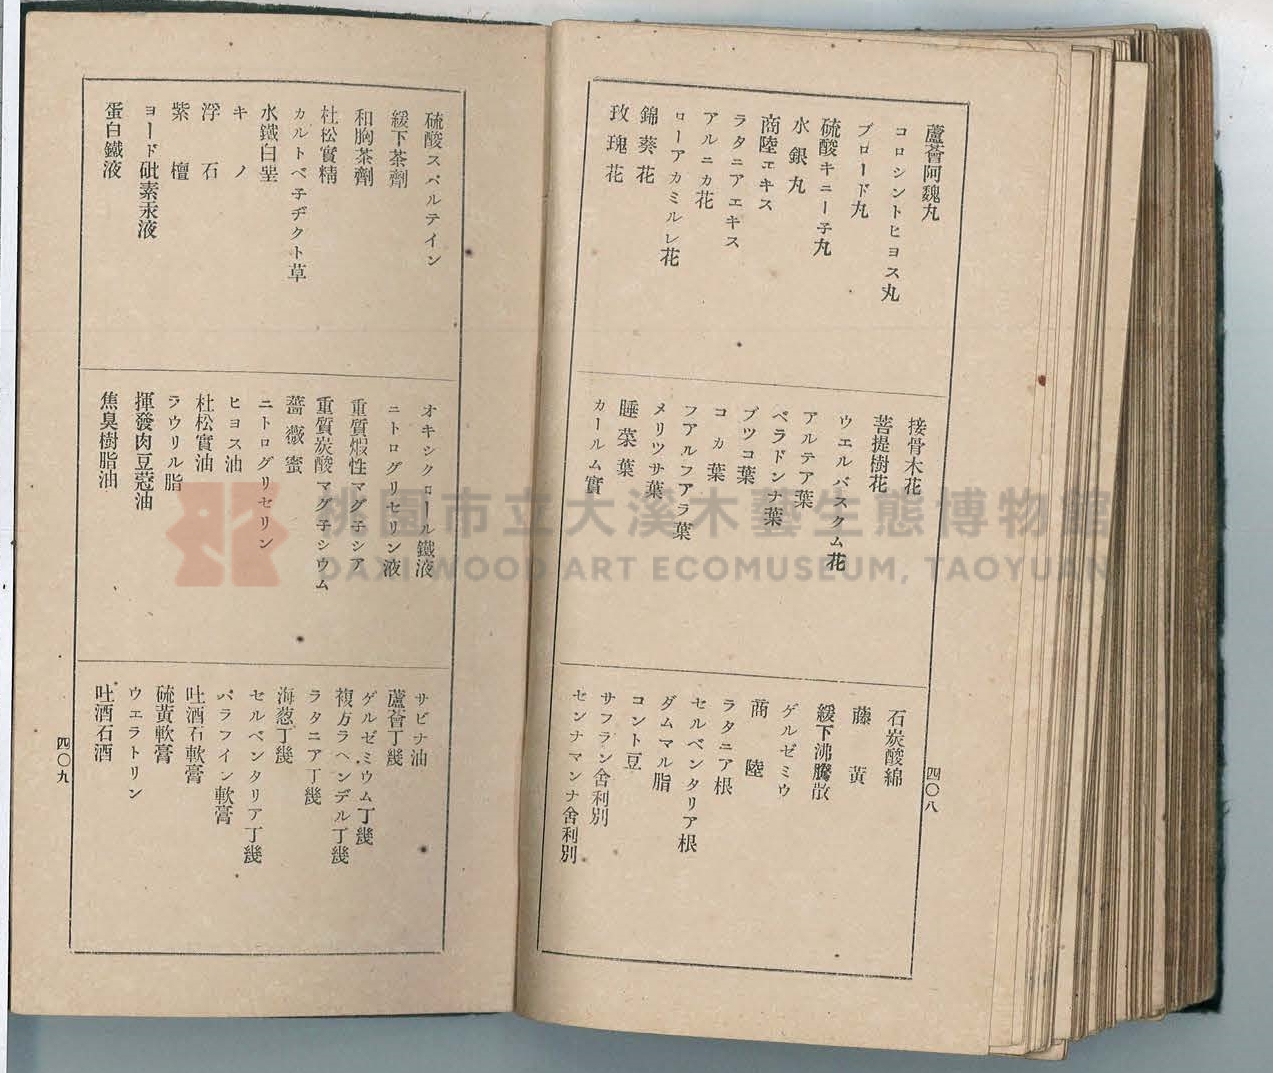 蘆薈阿魏丸
コロシントヒヨス丸
ブロード丸
硫酸キニー子丸
水銀丸
商陸エキス
ラタニアエキス
アルニカ花
ローアカミルレ花
錦葵花
玫瑰花
接骨木花
菩提樹花
ウエルバスクム花
アルテア葉
ベラドンナ葉
ブツコ葉
コカ葉
フアルフアラ葉
メリツサ葉
睡菜葉
カールム實
石炭酸綿
藤黄
緩下沸騰散
ゲルゼミウ
商陸
ラタニア根
セルベンタリア根
ダムマル脂
コント豆
サフラン舍利別
センナマンナ舍利別
四〇八
硫酸スパルテイン
緩下茶劑
和胸茶劑
杜松實精
カルトベ子ヂクト草
水鐵白堊
キノ
浮石
紫檀
ヨード砒素汞液
蛋白鐵液
オキシクロール鐵液
ニトログリセリン液
重質煆性マグ子シア
重質炭酸マグ子シウム
薔薇蜜
ニトログリセリン
ヒヨス油
杜松實油
ラウリル脂
揮發肉豆蔻油
焦臭樹脂油
サビナ油
蘆薈丁幾
ゲルゼミウム丁幾
複方ラヘンデル丁幾
ラタニア丁幾
海葱丁幾
セルベンタリア丁幾
パラフイン軟膏
吐酒石軟膏
硫黄軟膏
ウエラトリン
吐酒石酒
四〇九
桃園市立大溪木藝生態博物館
DAXI WOOD ART ECOMUSEUM, TAOYUAN